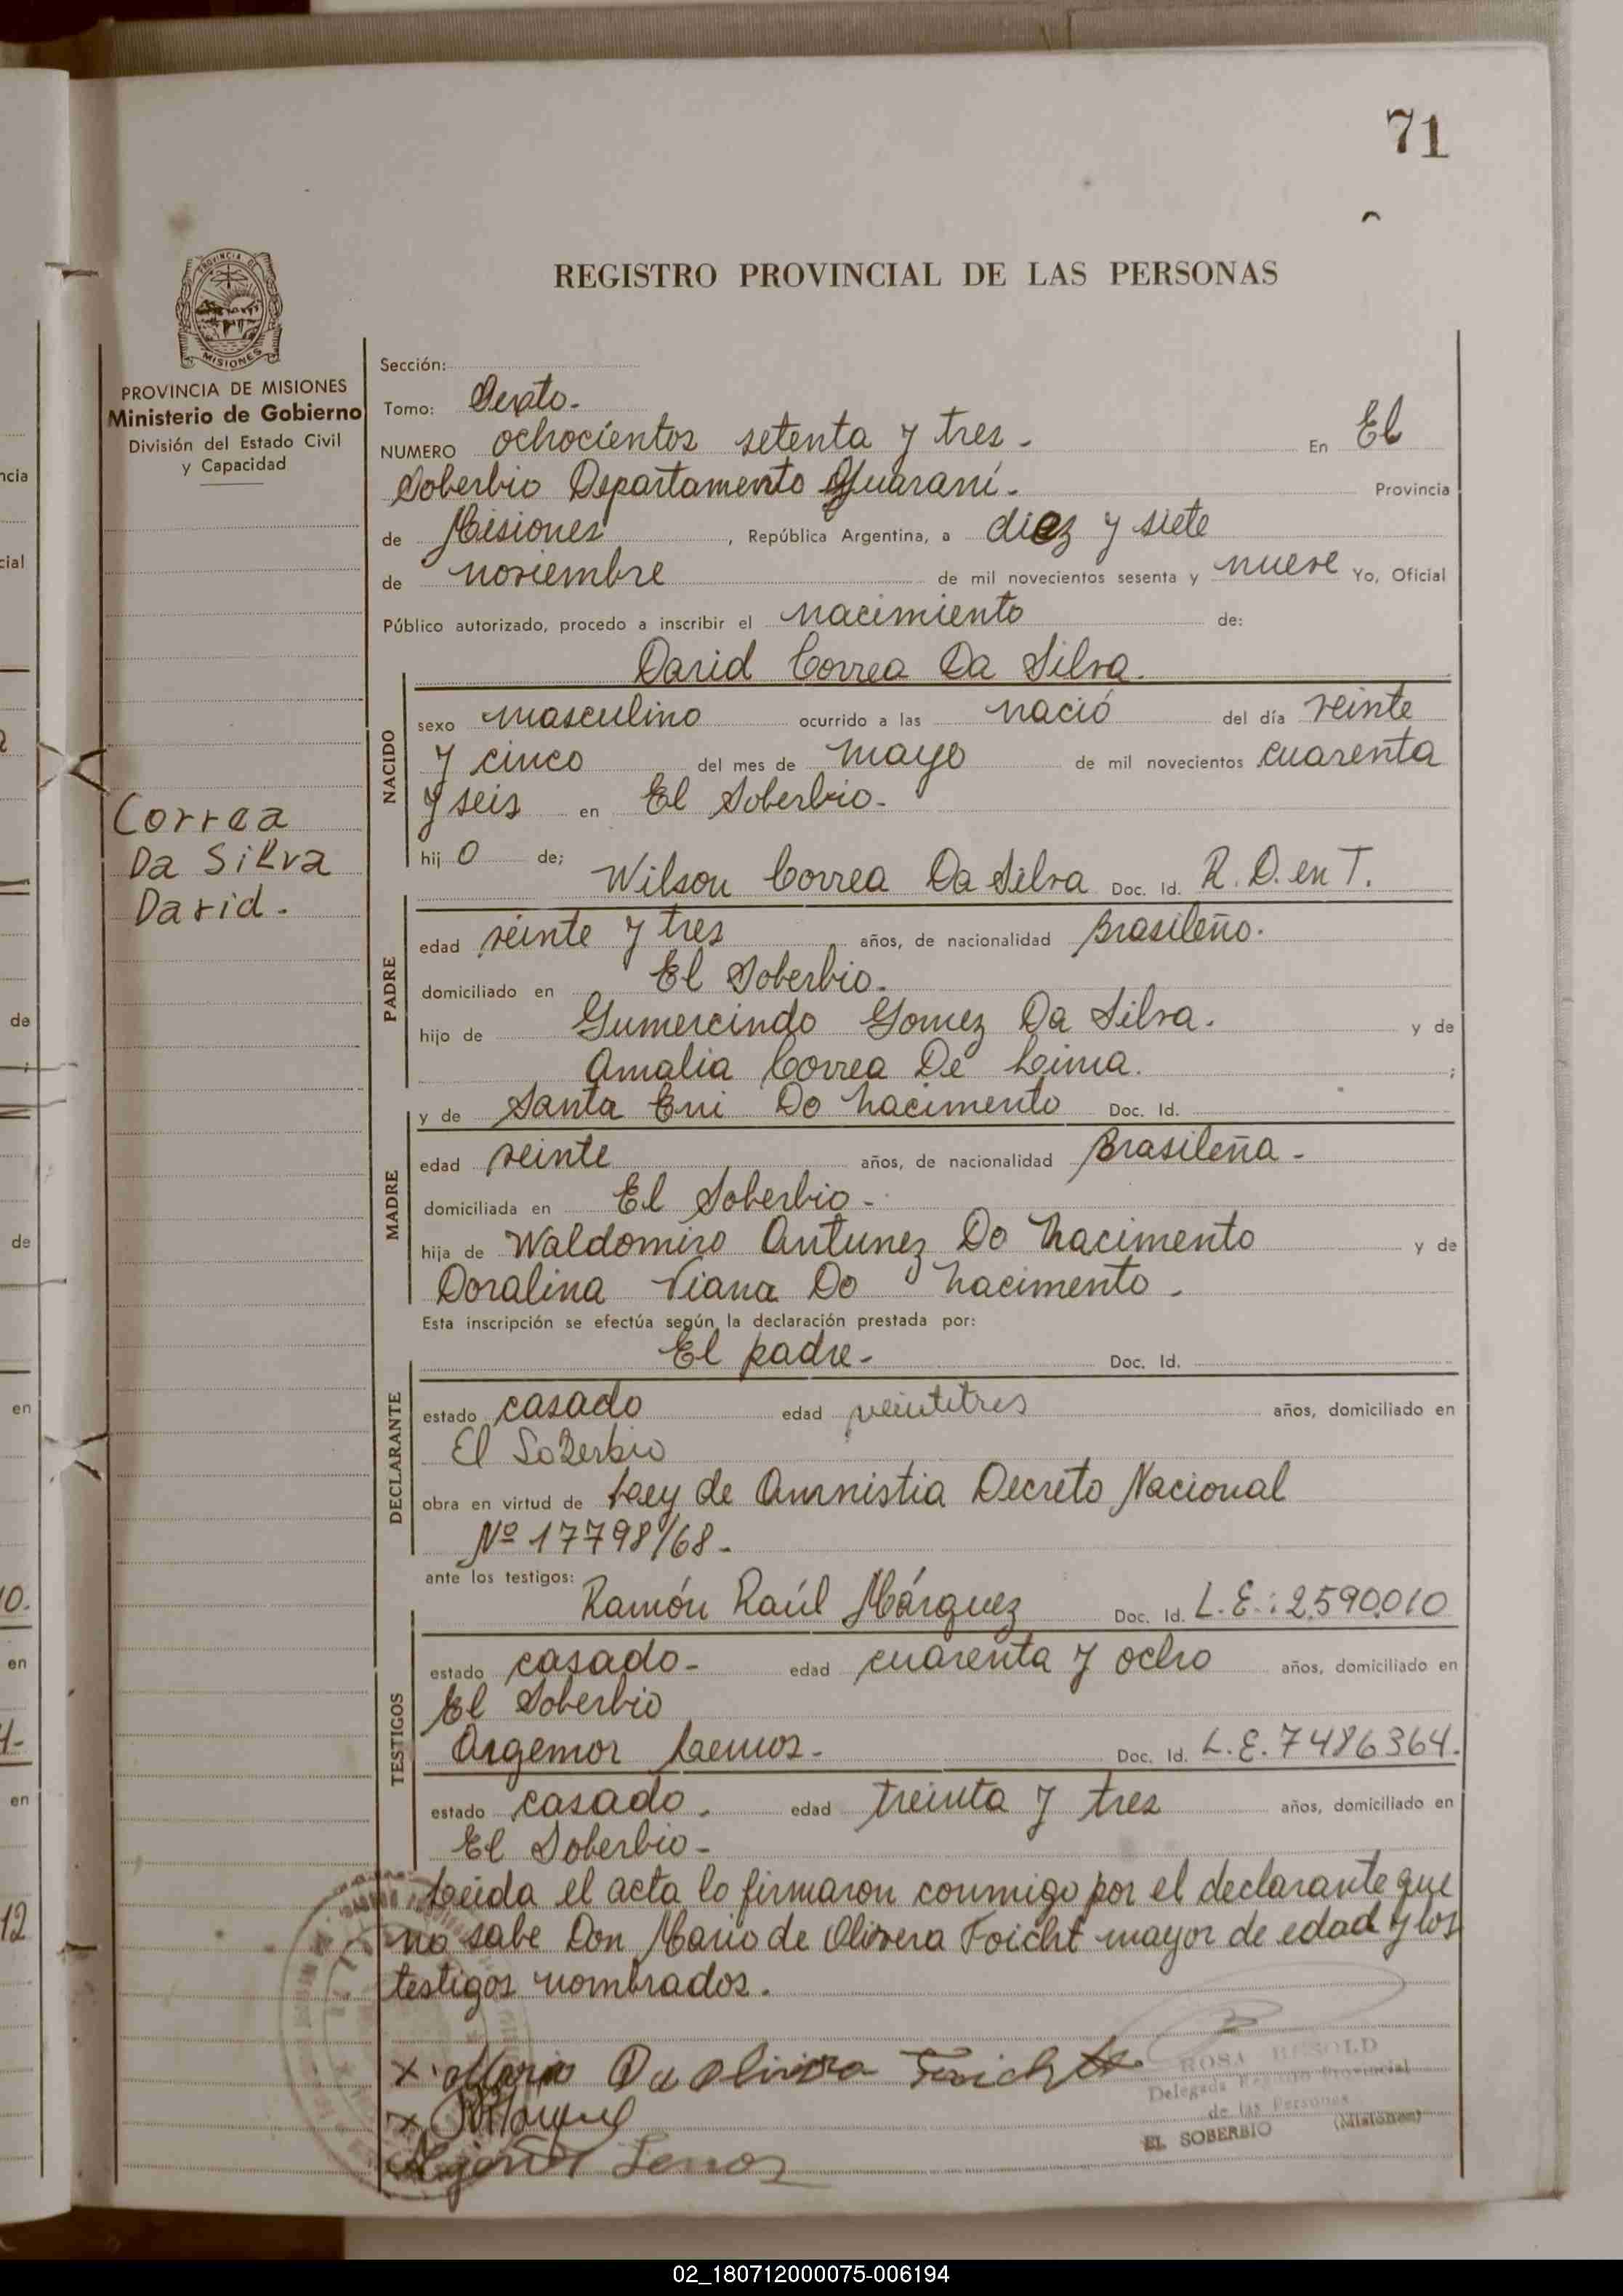 71
REGISTRO PROVINCIAL DE LAS PERSONAS
PROVINCIA DE
MISIONES
PROVINCIA DE MISIONES
Ministerio de Gobierno
División del Estado Civil
y Capacidad
Correa
Da Silva
David.
Sección:
Tomo: Sexto.
NUMERO ochocientos setenta y tres. En El
Soberbio Departamento Guaraní. Provincia
de Misiones, República Argentina, a diez y siete
de noviembre de mil novecientos sesenta y nueve Yo, Oficial
Público autorizado, procedo a inscribir el nacimiento de:
David Correa Da Silva.
NACIDO
sexo masculino ocurrido a las nació del día veinte
y cinco del mes de mayo de mil novecientos cuarenta
y seis en El Soberbio.
hijo de; Wilson Correa Da Silva Doc. Id. R. D. en T.
PADRE
edad veinte y tres años, de nacionalidad Brasileño.
domiciliado en El Soberbio.
hijo de Gumercindo Gomez Da Silva. y de
Amalia Correa De Lima. ;
y de Santa Eni Do Nacimento Doc. Id.
MADRE
edad veinte años, de nacionalidad Brasileña.
domiciliada en El Soberbio.
hija de Waldomiro Antunez Do Nacimento y de
Doralina Viana Do Nacimento.
Esta inscripción se efectúa según la declaración prestada por:
El padre. Doc. Id.
DECLARANTE
estado casado edad veintitres años, domiciliado en
El Soberbio
obra en virtud de Ley de Amnistia Decreto Nacional
Nº 17798/68.
ante los testigos:
Ramón Raúl Márquez Doc. Id. L.E.: 2.590.010
TESTIGOS
estado casado. edad cuarenta y ocho años, domiciliado en
El Soberbio
Argemor Lemos. Doc. Id. L.E. 7486364.
estado casado. edad treinta y tres años, domiciliado en
El Soberbio.
Leida el acta lo firmaron conmigo por el declarante que
no sabe Don Mario de Olivera Foicht mayor de edad y los
testigos nombrados.
x Mario Da Olivera Foicht
x
Lemos
ROSA RESOLD
Delegada Registro Provincial
de las Personas
EL SOBERBIO (Misiones)
02_180712000075-006194